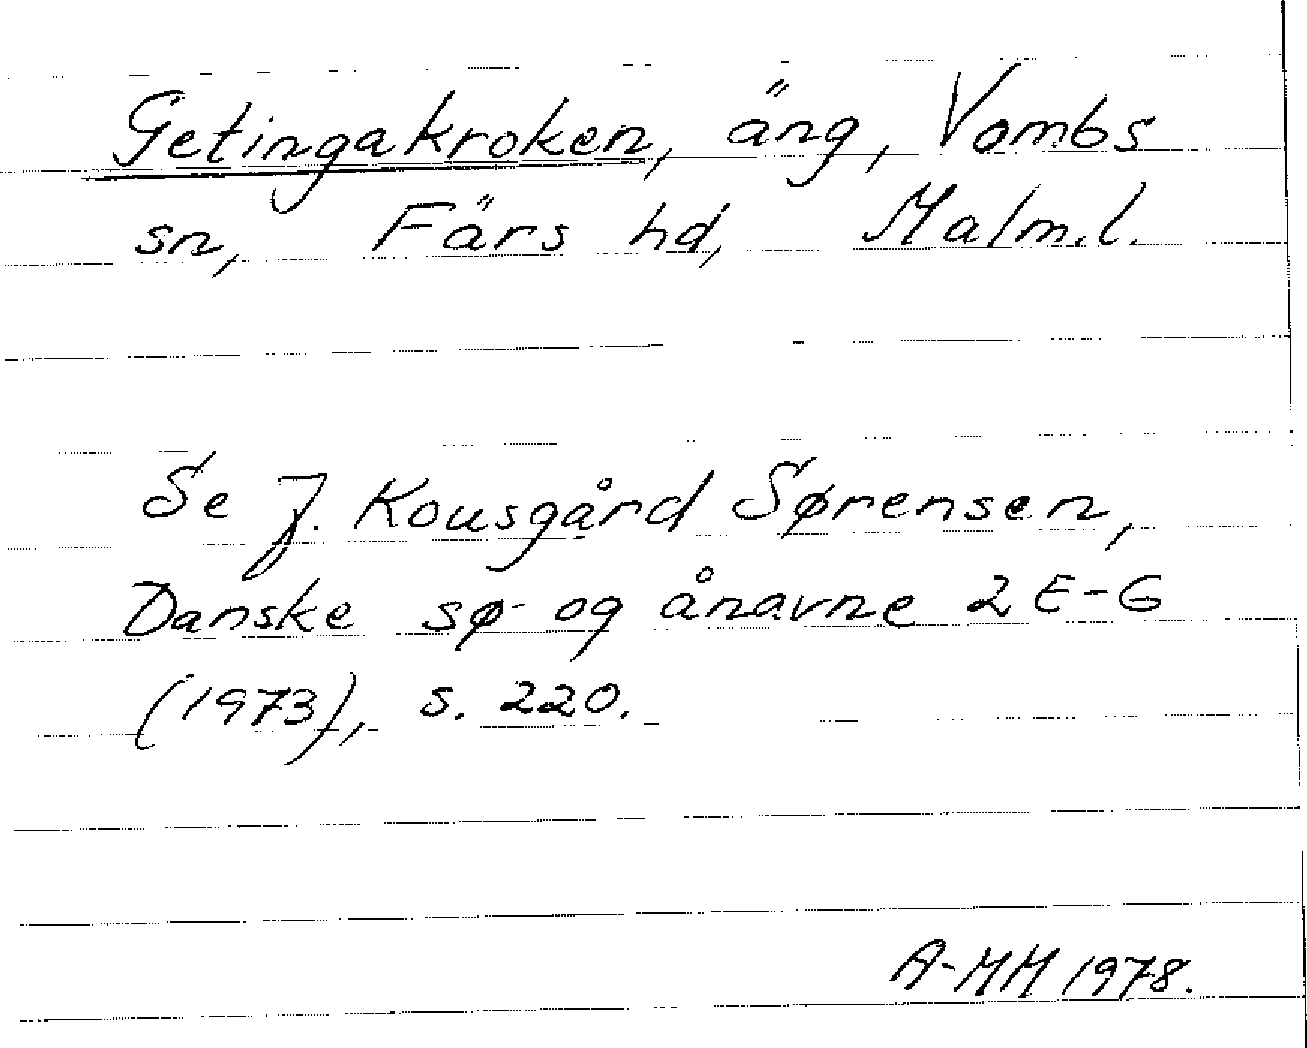 Getingakroken, äng, Vombs
sn, Färs hd, Malm.l.
Se J. Kousgård Sørensen,
Danske sø- og ånavne 2 E-G
(1973), s. 220.
A-MM 1978.